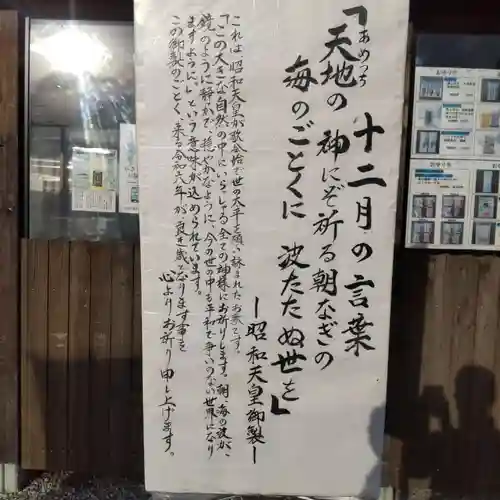 十二月の言葉
「天地の神にぞ祈る朝なぎの
あめつち
海のごとくに波たたぬ世を」
ー昭和天皇御製ー
これは昭和天皇が歌会始で世の太平を願い詠まれたお歌です。
「この大きな自然の中にいらっしゃる全ての神様にお祈りします。朝、海の波が、
鏡のように静かで、穏やかなように、今の世の中も平和で争いのない世界になり
ますように」という意味が込められています。
この御製のごとく、来る令和六年が、良き歳となります事を
心よりお祈り申し上げます。